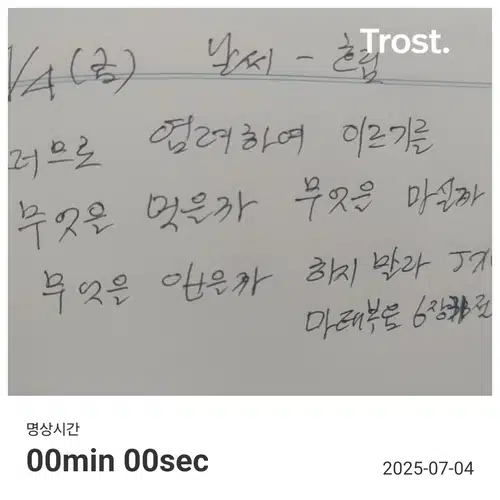 Trost.
/4(금) 날씨 - 흐림
러므로 염려하여 이르기를
무엇을 먹을까 무엇을 마실까
무엇을 입을까 하지 말라
마태복음 6장
명상시간
00min 00sec
2025-07-04